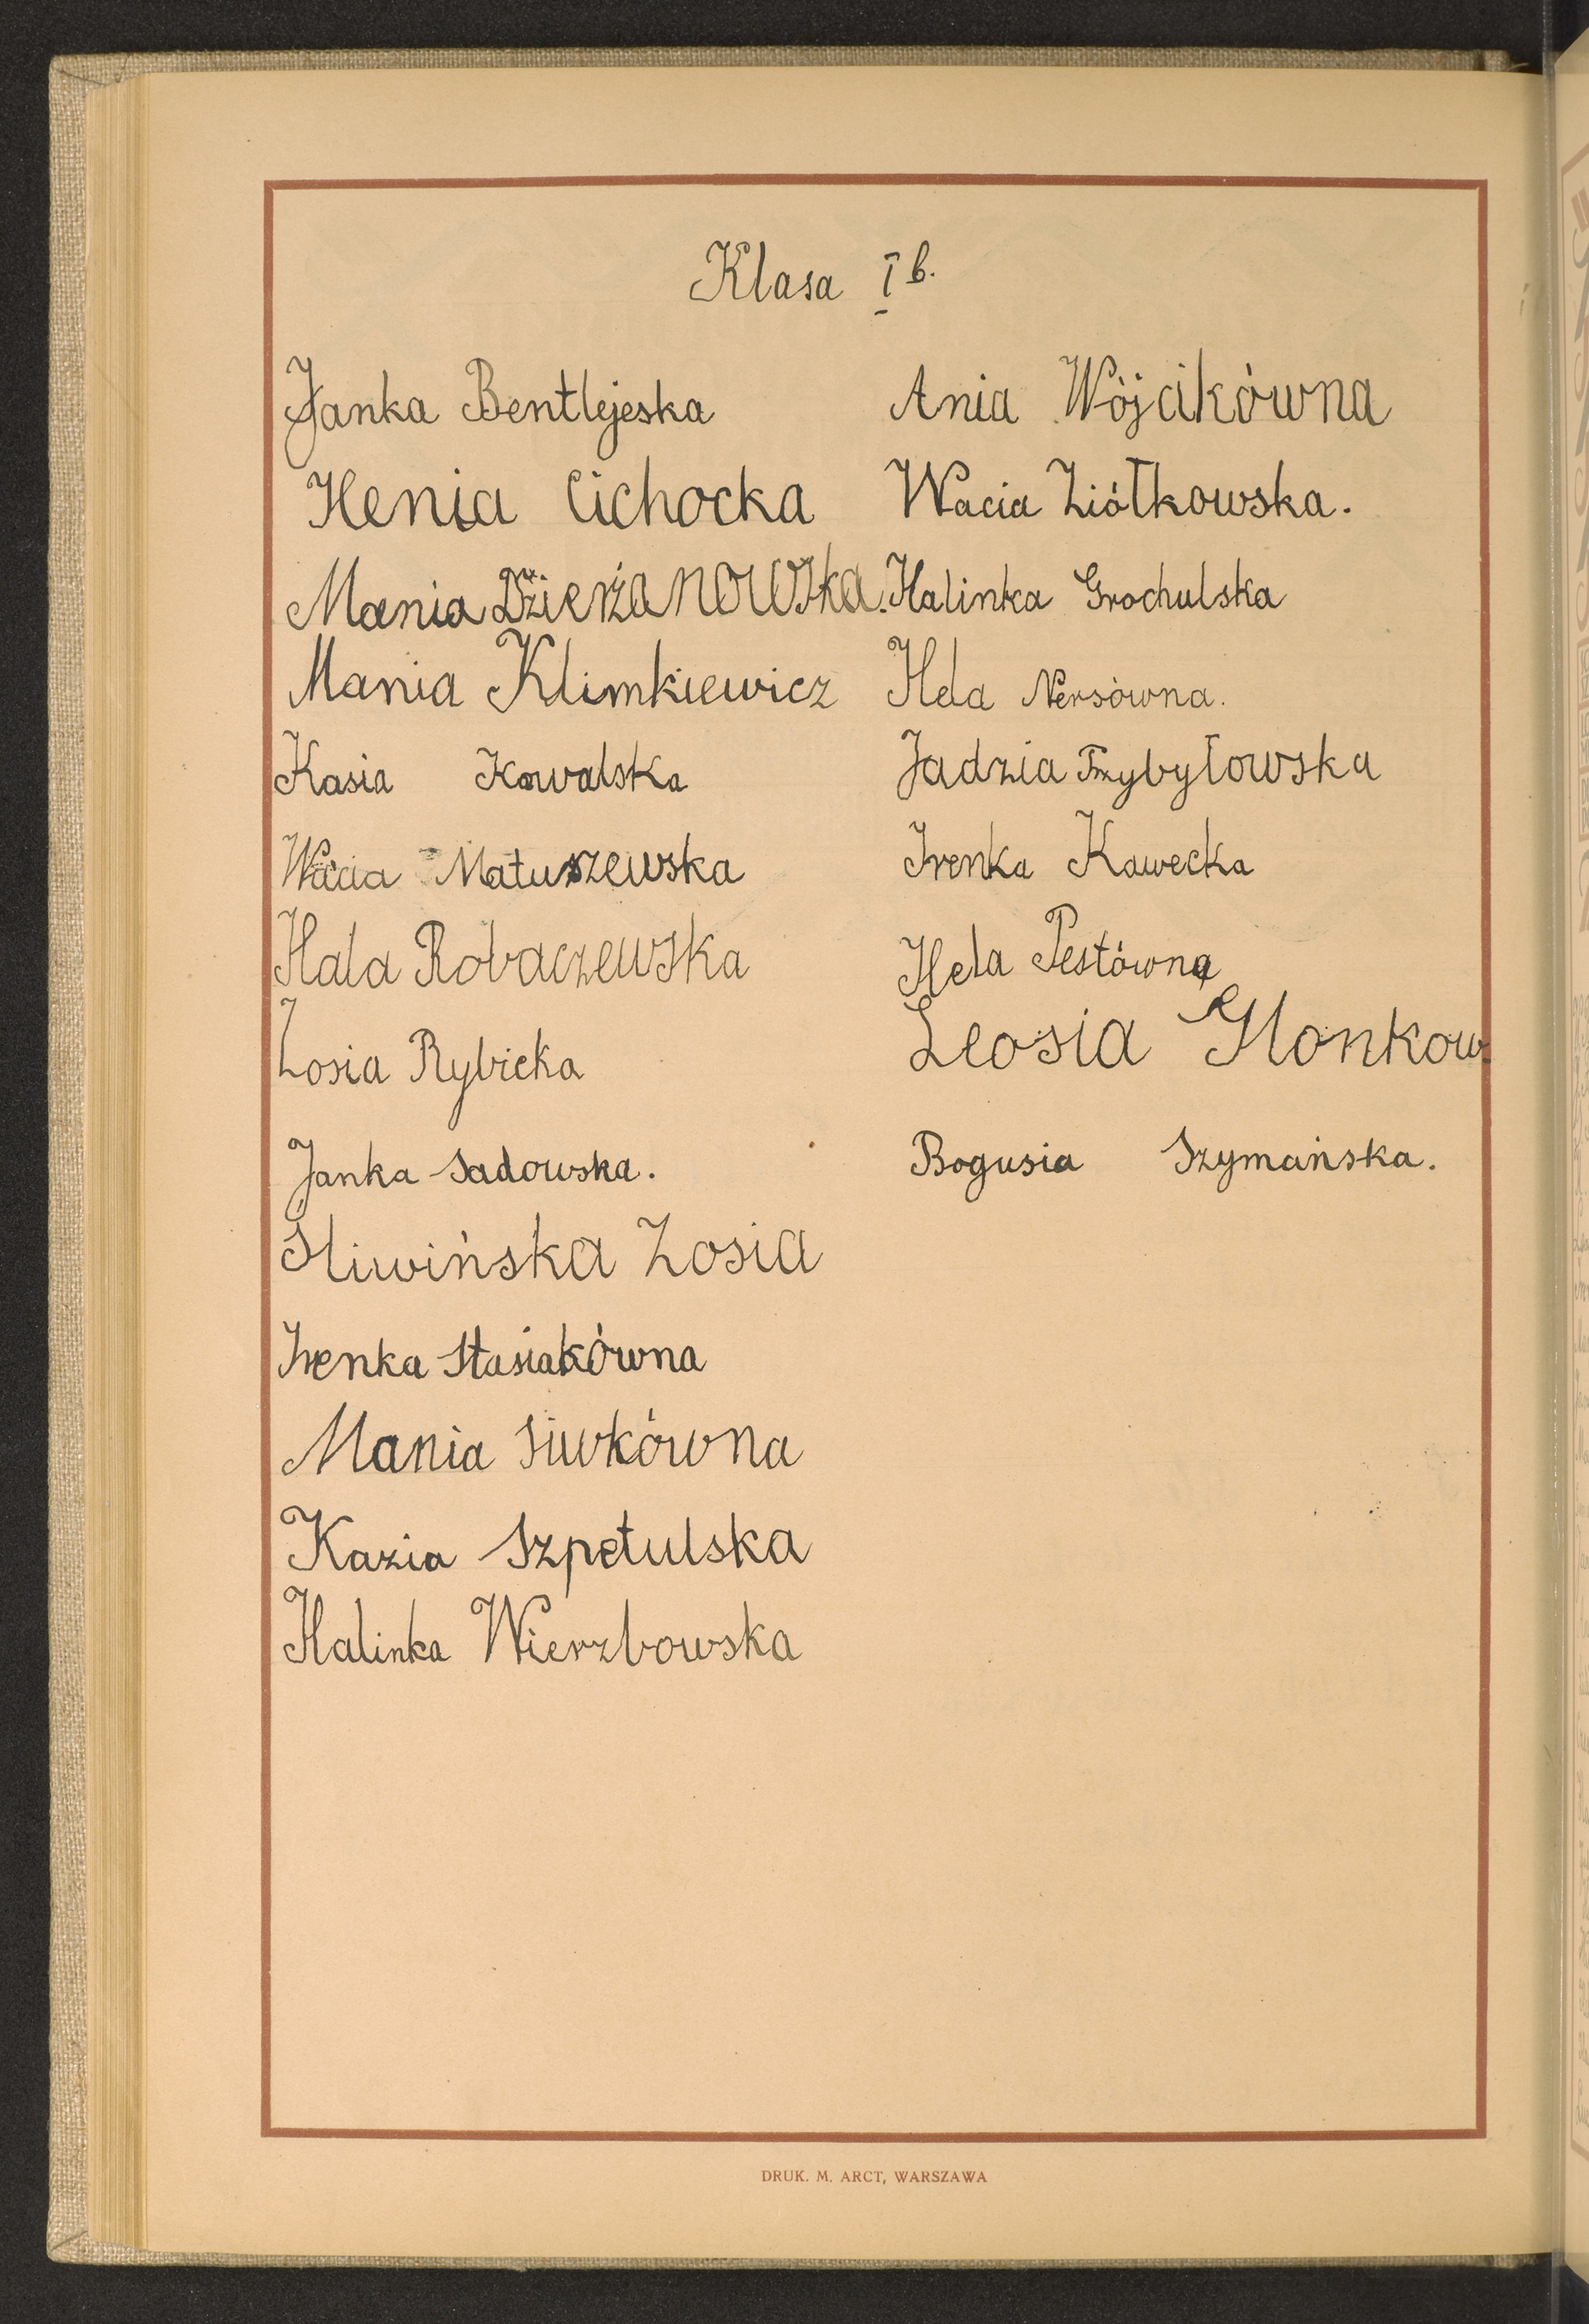 Klasa I b.
Janka Bentlejeska
Henia Cichocka
Mania Dzierżanowska.
Mania Klimkiewicz
Kasia Kowalska
Wacia Matuszewska
Hala Robaczewska
Zosia Rybicka
Janka Sadowska.
Sliwińska Zosia
Irenka Stasiakówna
Mania Siwkówna
Kazia Szpetulska
Halinka Wierzbowska
Ania Wójcikówna
Wacia Ziółkowska.
Halinka Grochulska
Hela Nersówna.
Jadzia Przybyłowska
Irenka Kawecka
Hela Pestówna
Leosia
Bogusia Szymańska.
DRUK. M. ARCT, WARSZAWA